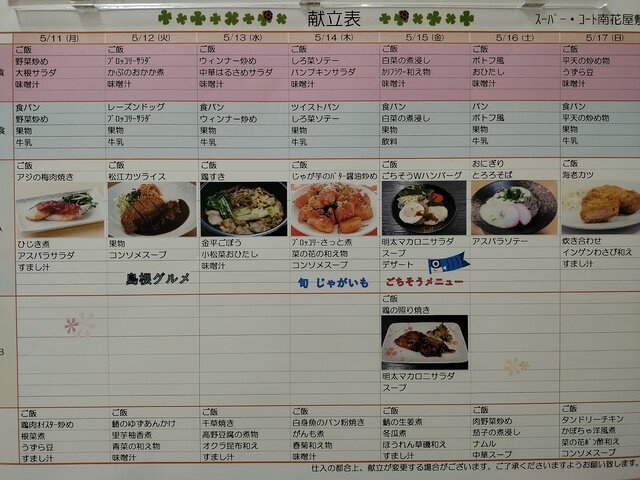 献立表
スーパー・コート南花屋敷
5/11 (月) 5/12 (火) 5/13 (水) 5/14 (木) 5/15 (金) 5/16 (土) 5/17 (日)
ご飯 ご飯 ご飯 ご飯 ご飯 ご飯 ご飯
野菜炒め ブロッコリーサラダ ウィンナー炒め しろ菜ソテー 白菜の煮浸し ポトフ風 平天の炒め物
大根サラダ かぶのおかか煮 中華はるさめサラダ パンプキンサラダ カリフラワー和え物 おひたし うずら豆
味噌汁 味噌汁 味噌汁 味噌汁 味噌汁 味噌汁 味噌汁
食パン レーズンドッグ 食パン ツイストパン 食パン 食パン 食パン
野菜炒め ブロッコリーサラダ ウィンナー炒め しろ菜ソテー 白菜の煮浸し ポトフ風 平天の炒め物
果物 果物 果物 果物 果物 果物 果物
牛乳 牛乳 牛乳 牛乳 飲料 牛乳 牛乳
ご飯 ご飯 ご飯 ご飯 ご飯 おにぎり ご飯
アジの梅肉焼き 松江カツライス 鶏すき じゃが芋のバター醤油炒め ごちそうWハンバーグ とろろそば 海老カツ
ひじき煮 果物 金平ごぼう ブロッコリーさっと煮 明太マカロニサラダ アスパラソテー 炊き合わせ
アスパラサラダ コンソメスープ 小松菜おひたし 菜の花の和え物 スープ インゲンわさび和え
すまし汁 味噌汁 コンソメスープ デザート すまし汁
島根グルメ 旬 じゃがいも ごちそうメニュー
ご飯
鶏の照り焼き
明太マカロニサラダ
スープ
ご飯 ご飯 ご飯 ご飯 ご飯 ご飯 ご飯
鶏肉オイスター炒め 鰆のゆずあんかけ 千草焼き 白身魚のパン粉焼き 鯖の生姜煮 肉野菜炒め タンドリーチキン
根菜煮 里芋柚香煮 高野豆腐の煮物 がんも煮 冬瓜煮 茄子の煮浸し かぼちゃ洋風煮
うずら豆 青菜の和え物 オクラ昆布和え 春菊和え物 ほうれん草磯和え ナムル 菜の花ポン酢和え
すまし汁 味噌汁 すまし汁 味噌汁 すまし汁 中華スープ コンソメスープ
仕入の都合上、献立が変更する場合がございます。ご了承くださいますようお願い致します。